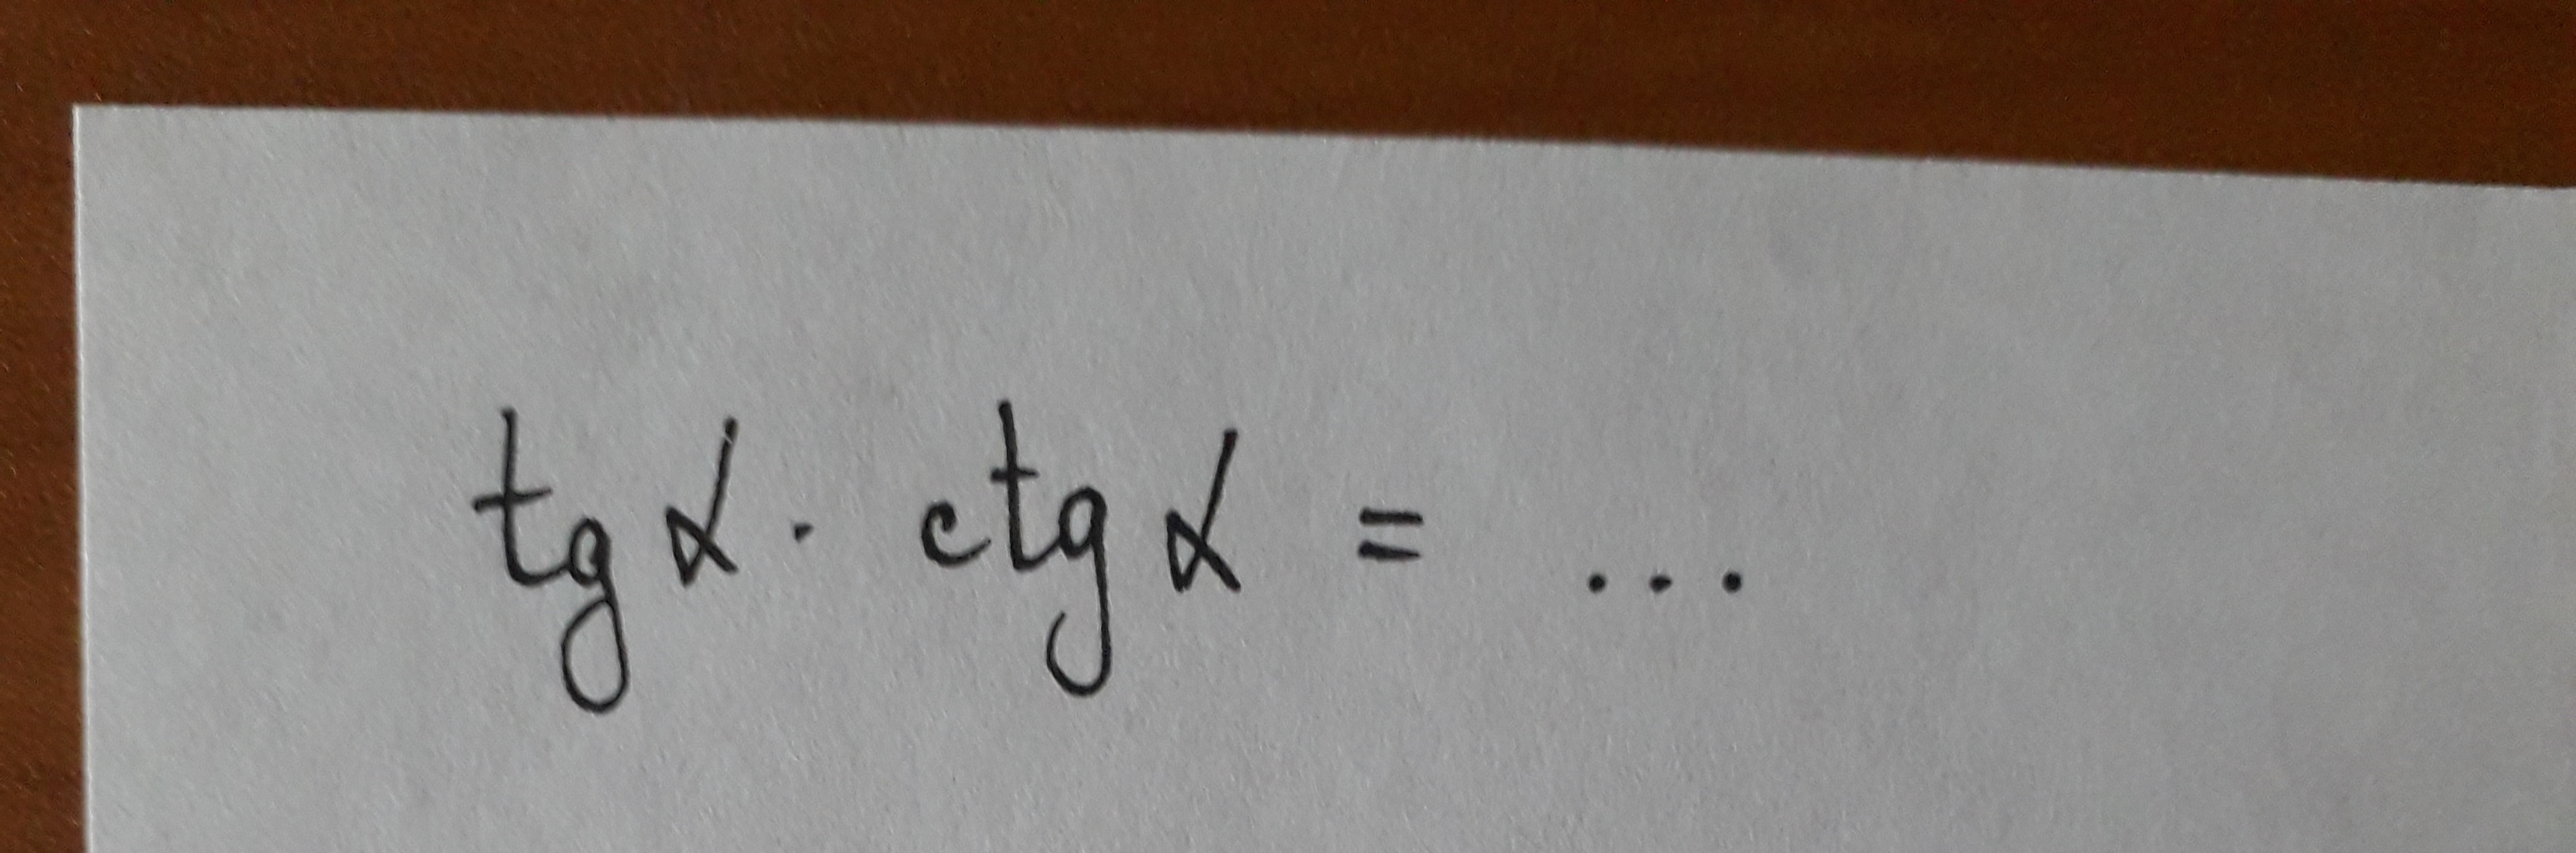 tg α · ctg α = ...